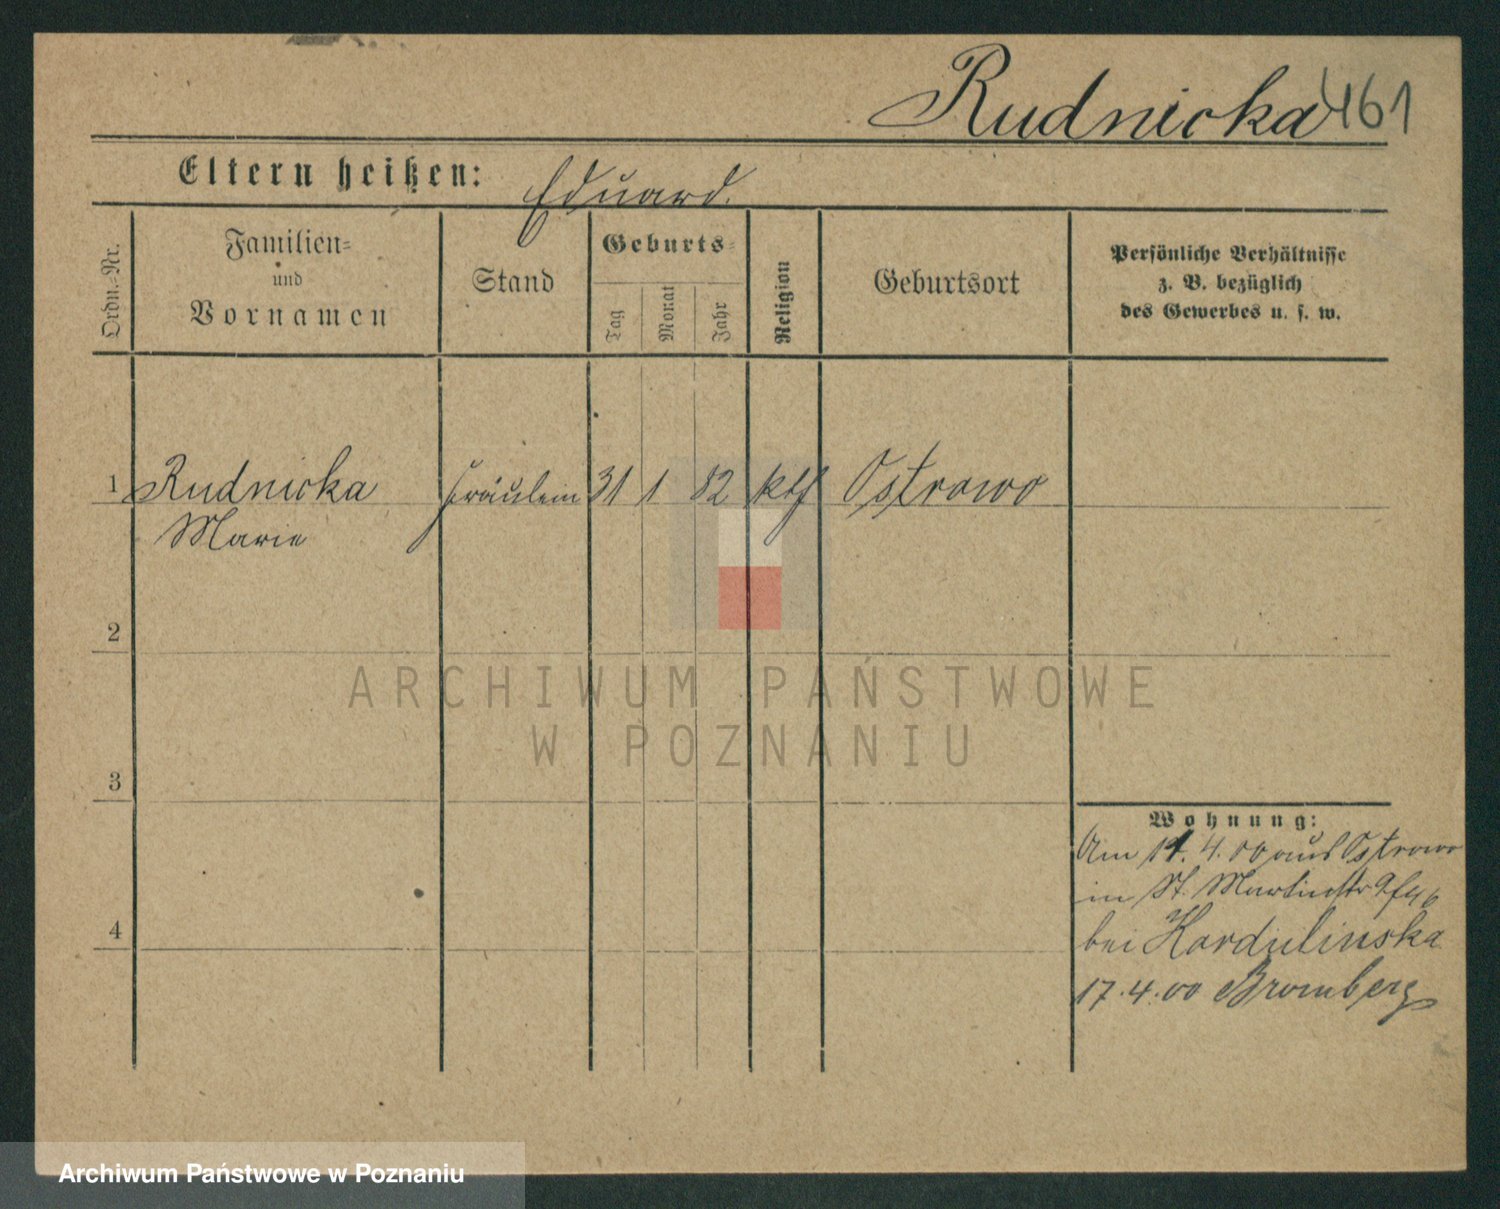 Rudnicka 461
Eltern heißen: Eduard.
Ordn.-Nr.
Familien-
und
Vornamen
Stand
Geburts-
Tag
Monat
Jahr
Religion
Geburtsort
Persönliche Verhältnisse
z. B. bezüglich
des Gewerbes u. s. w.
1 Rudnicka Fräulein 31 1 82 kth Ostrowo
Marie
2
3
4
Wohnung:
Am 14. 4. 00 aus Ostrowo
in St. Martinstr
bei Kardulinska
17.4.00 Bromberg
ARCHIWUM PAŃSTWOWE
W POZNANIU
Archiwum Państwowe w Poznaniu